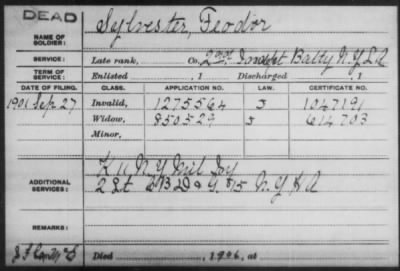 DEAD
NAME OF SOLDIER: Sylvester, Feodor
SERVICE: Late rank, Co. Indpt Batty N.Y.L.A
TERM OF SERVICE: Enlisted , 1 Discharged , 1
DATE OF FILING. CLASS. APPLICATION NO. LAW. CERTIFICATE NO.
1901 Sep 27 Invalid, 1275564 J 1047191
Widow, 850529 J 614703
Minor,
K 11 N.Y. Mil Inf
ADDITIONAL SERVICES: 2 Lt & 15 N.Y.H.A
REMARKS:
Died , 1906, at